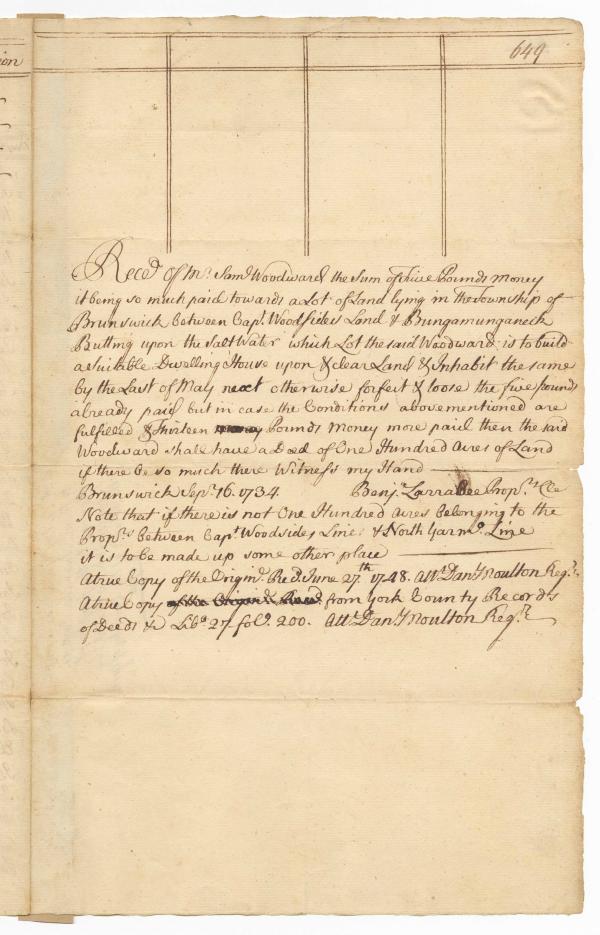 649
ion
Reced. of Mr. Saml. Woodward the Sum of five Pounds Money
it being so much paid towards a Lot of Land lying in the Township of
Brunswick between Capt. Woodsides Land & Bungamunganeck
Butting upon the Salt Water which Lot the said Woodward is to build
a Suitable Dwelling House upon & clear Land & Inhabit the same
by the Last of May next otherwise forfeit & loose the five pounds
already paid but in case the Conditions abovementioned are
fulfilled & thirteen Pounds Money more paid then the said
Woodward shall have a Deed of One Hundred Acres of Land
if there be so much there Witness my Hand
Brunswick Sepr. 16. 1734. Benjn. Larrabee Props. Cle
Note that if there is not One Hundred Acres belonging to the
Props. between Capt Woodsides Line & North Yarmo. Line
it is to be made up some other place
A true Copy of the Origl. Recd. June 27th. 1748. Attt. Danl. Moulton Regr.
A true Copy of the Origin'l Recd. from York County Records
of Deeds &c Libo. 27. folo. 200. Attt. Danl. Moulton Regr.